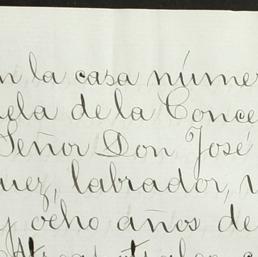 n la casa núme
ela de la Conce
Señor Don José
uez, labrador,
y ocho años de